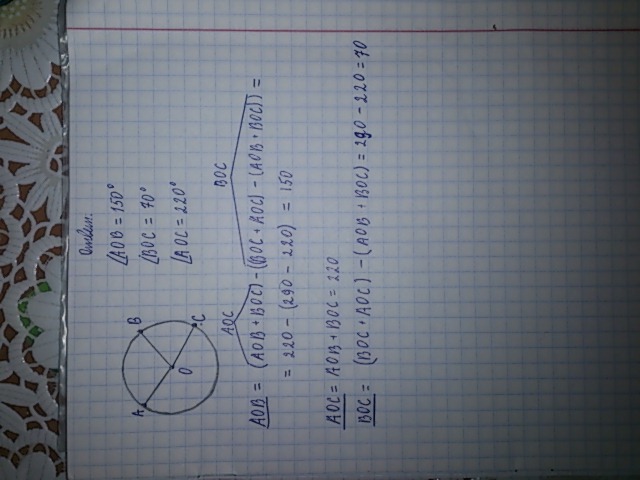 A
B
C
O
Ответ:
∠AOB = 150°
∠BOC = 70°
∠AOC = 220°
AOC
BOC
AOB = (AOB + BOC) - ((BOC + AOC) - (AOB + BOC)) =
= 220 - (290 - 220) = 150
AOC = AOB + BOC = 220
BOC = (BOC + AOC) - (AOB + BOC) = 290 - 220 = 70